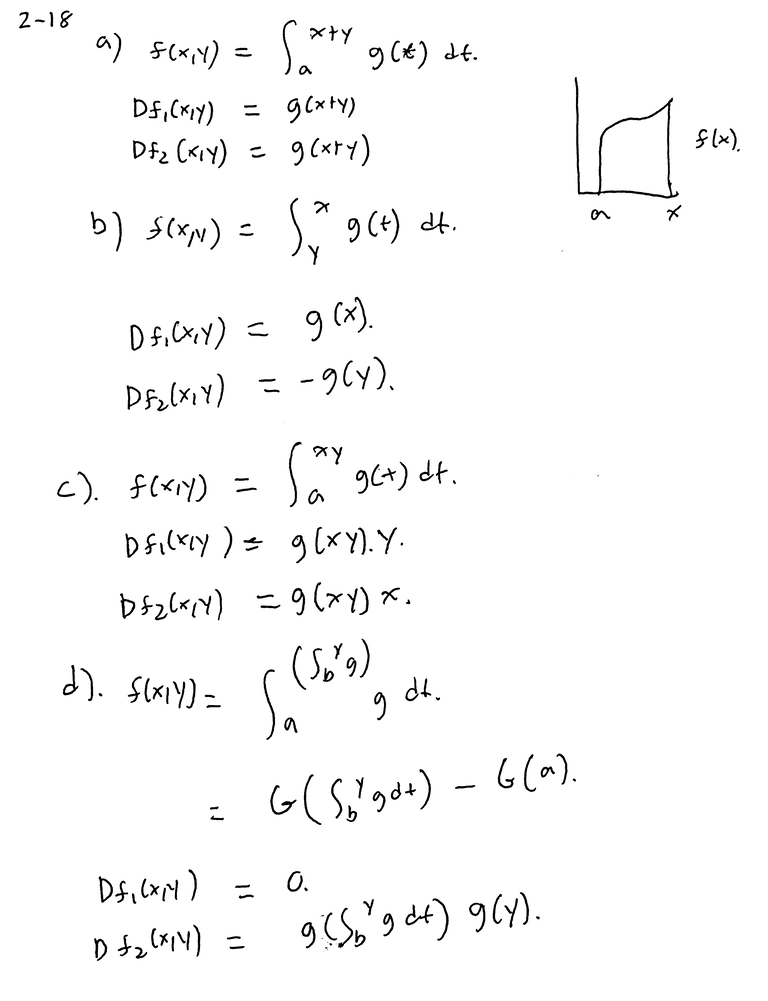 2-18
a) f(x,y) = ∫_a^{x+y} g(t) dt.
Df₁(x,y) = g(x+y)
Df₂(x,y) = g(x+y)
f(x).
a x
b) f(x,y) = ∫_y^x g(t) dt.
Df₁(x,y) = g(x).
Df₂(x,y) = -g(y).
c). f(x,y) = ∫_a^{xy} g(t) dt.
Df₁(x,y) = g(xy).y.
Df₂(x,y) = g(xy) x.
d). f(x,y) = ∫_a^{(∫_b^y g)} g dt.
= G(∫_b^y g dt) - G(a).
Df₁(x,y) = 0.
Df₂(x,y) = g(∫_b^y g dt) g(y).